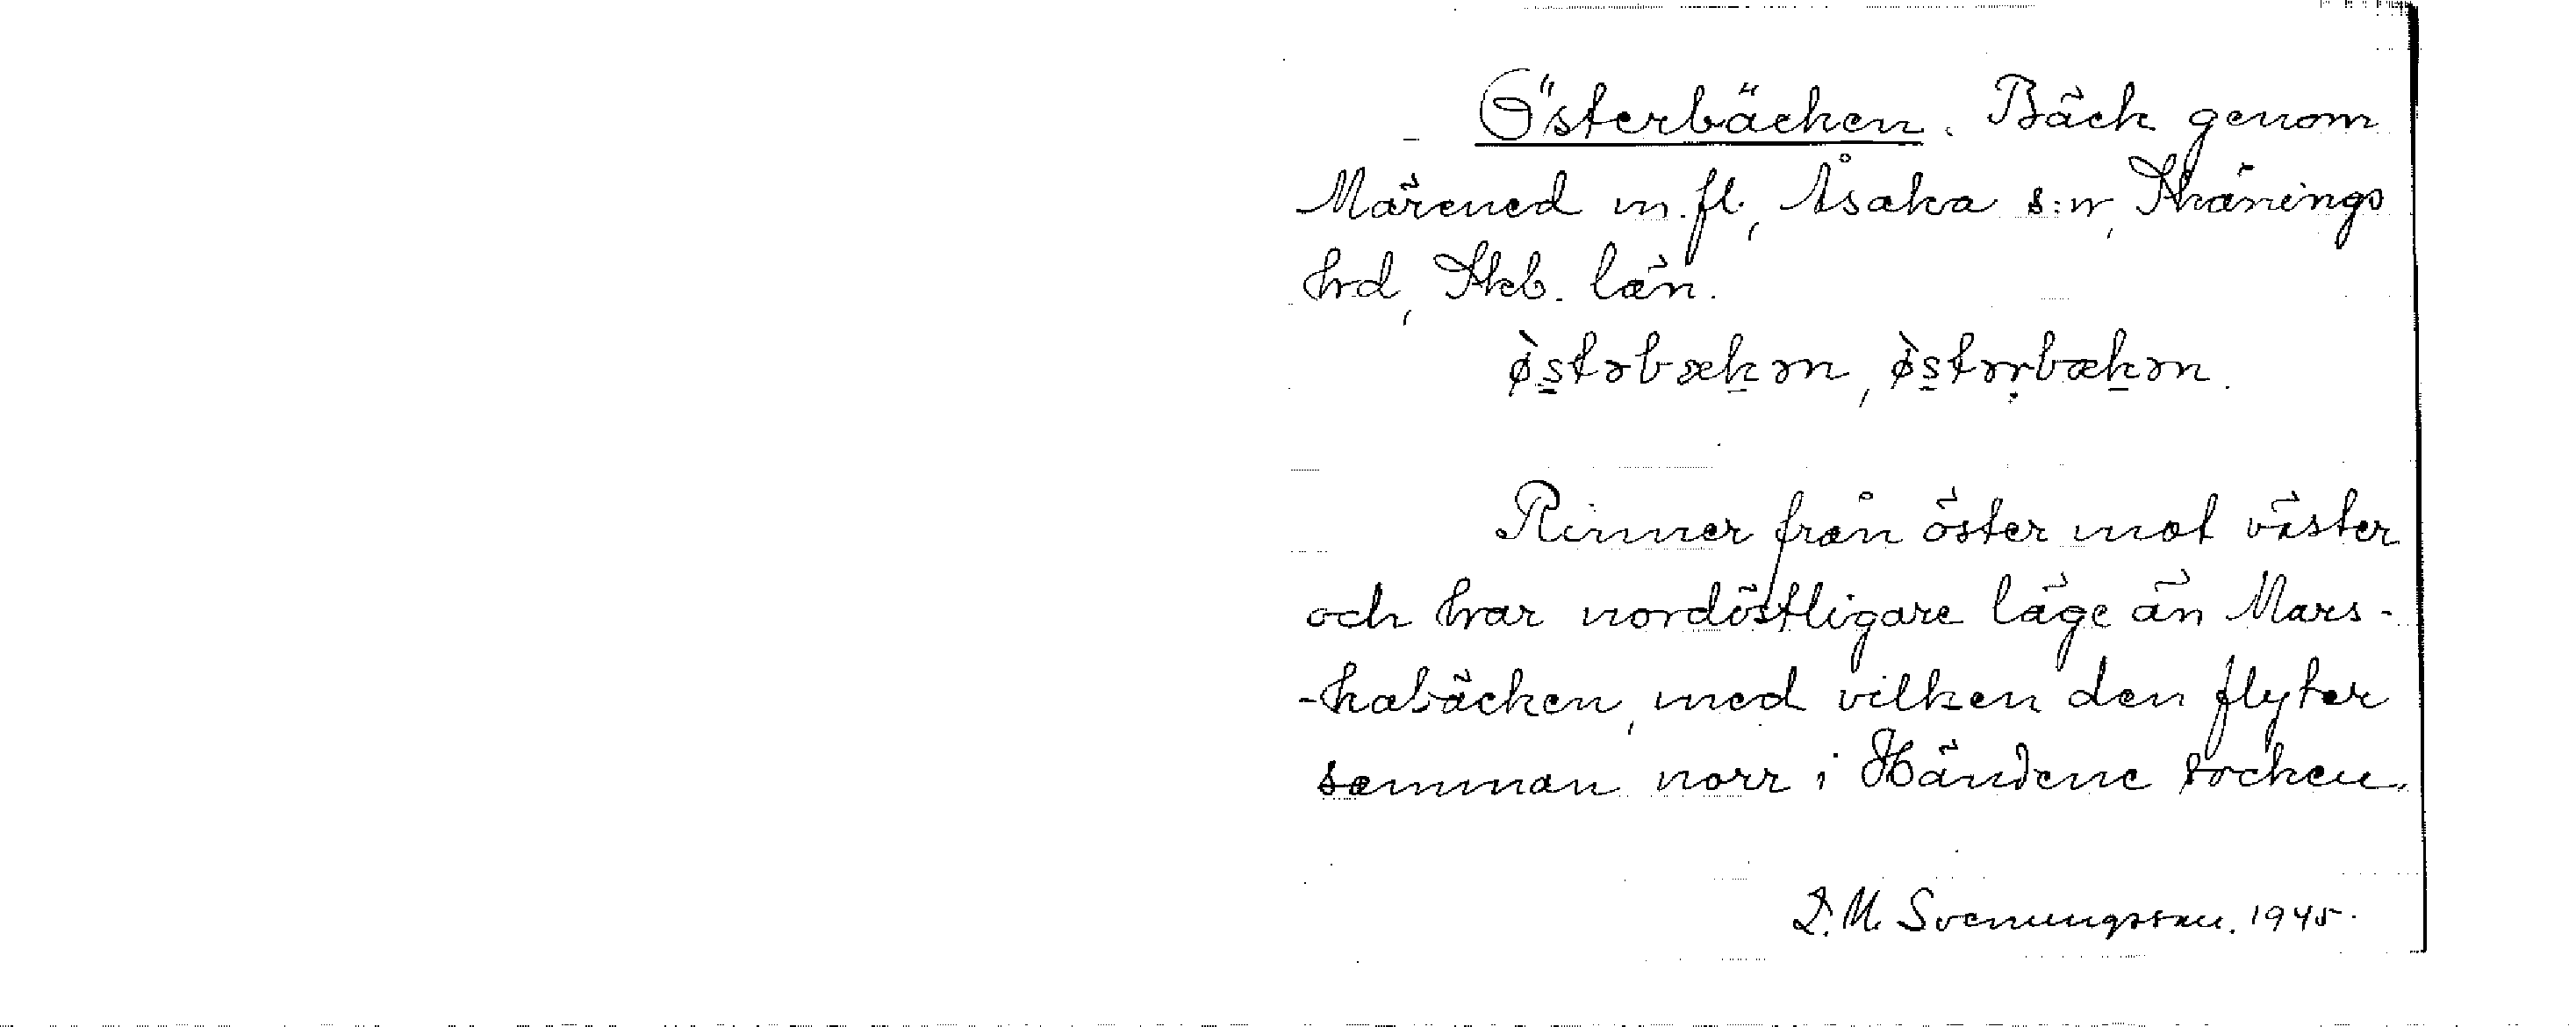 Österbäcken. Bäck genom
Märened m.fl., Åsaka s:n, Skånings
hrd, Skb. län.
ø̀s̠təbæk̠ən, ø̀s̠tərbæk̠ən.
Rinner från öster mot väster
och har nordöstligare läge än Mars-
-kabäcken, med vilken den flyter
samman norr i Händene socken.
D. M. Svenungsson. 1945.